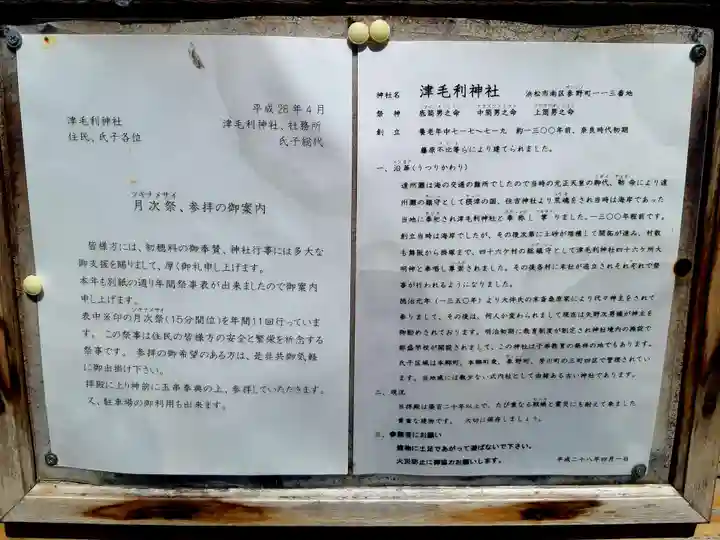 平成26年4月
津毛利神社
住民、氏子各位
津毛利神社、社務所
氏子総代
ツキナメサイ
月次祭、参拝の御案内
皆様方には、初穂料の御奉賛、神社行事には多大な
御支援を賜りまして、厚く御礼申し上げます。
本年も別紙の通り年間祭事表が出来ましたので御案内
申し上げます。
ツキナメサイ
表中※印の月次祭(15分間位)を年間11回行っていま
す。この祭事は住民の皆様方の安全と繁栄を祈念する
祭事です。 参拝の御希望のある方は、是非共御気軽
に御出掛け下さい。
拝殿に上り神前に玉串奉奠の上、参拝していただきます。
又、駐車場の御利用も出来ます。
神社名 津毛利神社 浜松市南区参野町一一三番地
祭神 底筒男之命 中筒男之命 上筒男之命
創立 養老年中七一七~七一九 約一三〇〇年前、奈良時代初期
藤原不比等らにより建てられました。
一、沿革(うつりかわり)
遠州灘は海の交通の難所でしたので当時の元正天皇の御代、勅命により遠
州灘の鎮守として摂津の国、住吉神社より荒魂をされ当時は海岸であった
当地に奉祀され津毛利神社と奉称し掌りました。一三〇〇年程前です。
創立当時は海岸でしたが、その後次第に土砂が堆積して開拓が進み、村数
も舞阪から掛塚まで、四十六ケ村の総鎮守として津毛利神社四十六ケ所大
明神と奉唱し尊崇されました。その後各村に末社が造立されそれぞれで祭
事が行われるようになりました。
徳治元年(一三〇六)より大伴氏の末裔桑原家により代々神主をされて
参りまして、その後は、何人か変わられまして現在は矢野次男様が神主を
御勤めされております。明治初期に教育制度が制定され神社境内の施設で
郁盛学校が開設されまして、この神社は子弟教育の発祥の地でもあります。
氏子区域は本郷町、本郷町東、参野町、芳川町の三町四区で管理されてい
ます。当地域には数少ない式内社として由緒ある古い神社であります。
二、現況
当拝殿は築百二十年以上で、たび重なる戦禍と震災にも耐えて来ました
貴重な建物です。 大切に保存しましょう。
三、参拝者にお願い
建物に土足であがって遊ばないで下さい。
火災防止に御協力お願いします。
平成二十八年四月一日